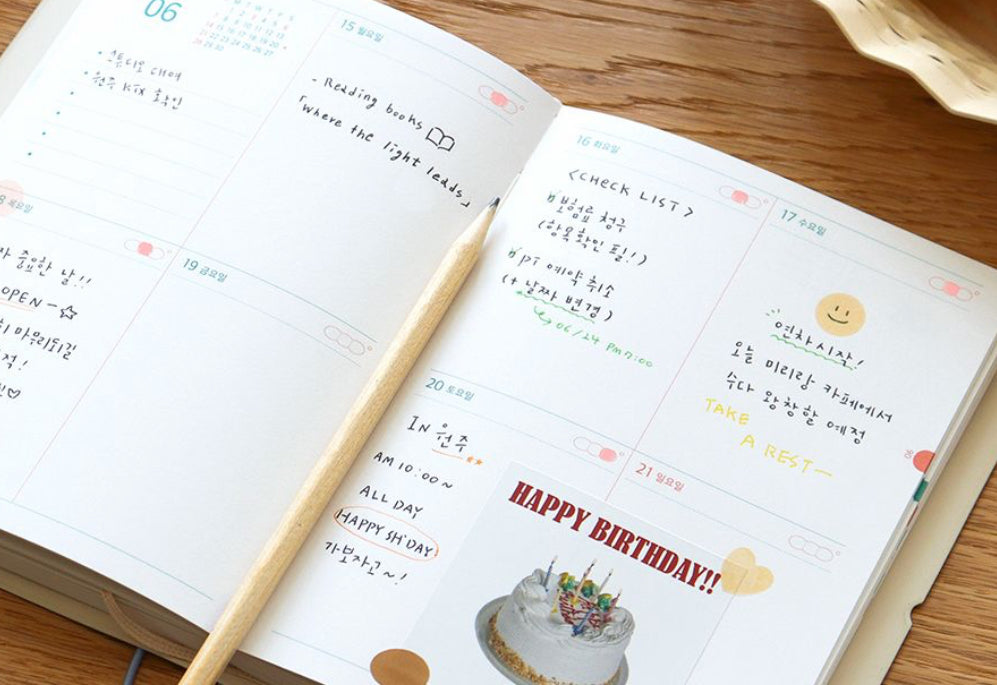 06
M T W T F S
• 스튜디오 대여
• 원주 KTX 확인
15 월요일
- Reading books
「Where the light leads」
16 화요일
<CHECK LIST>
보험료 청구
(항목확인 필!)
PT 예약 취소
(+ 날짜 변경)
↳ 06/24 PM 7:00
17 수요일
연차시작!
오늘 미리랑 카페에서
수다 왕창할 예정
TAKE
A REST—
8 목요일
중요한 날!!
OPEN-☆
마무리되길
19 금요일
20 토요일
IN 원주
AM 10:00~
ALL DAY
HAPPY SH'DAY
가보자고~!
21 일요일
HAPPY BIRTHDAY!!